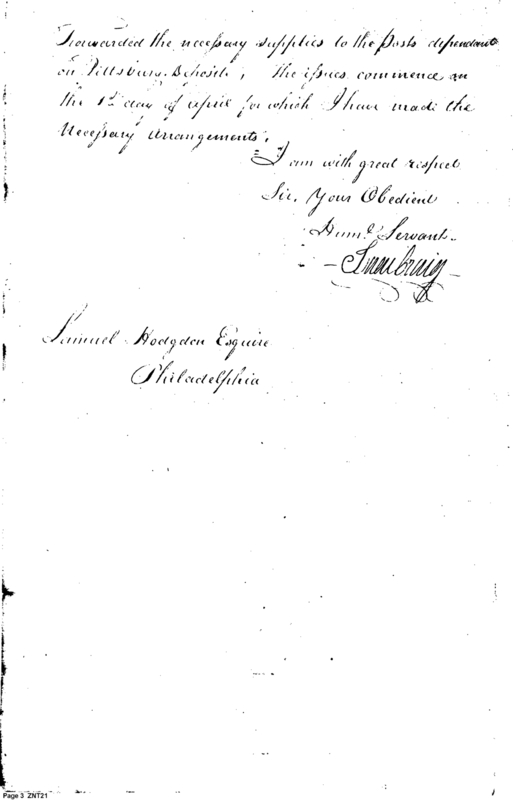 Forwarded the necessary supplies to the Posts dependant
on Pittsburg Deposit, The issues commence on
the 1st day of April for which I have made the
Necessary Arrangements,
I am with great respect
Sir, Your Obedient
Humle Servant
Isaac Craig
Samuel Hodgdon Esquire
Philadelphia
Page 3 ZNT21